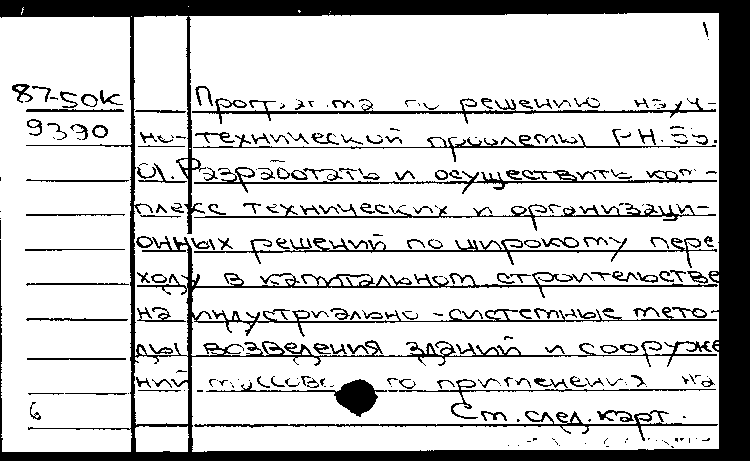 1
87-50К
9390
Программа по решению науч-
но-технической проблемы РН.55.
01. Разработать и осуществить ком-
плекс технических и организаци-
онных решений по широкому пере
ходу в капитальном строительстве
на индустриально-системные мето-
ды возведения зданий и сооруже
ний массового применения на
6
См. след. карт.